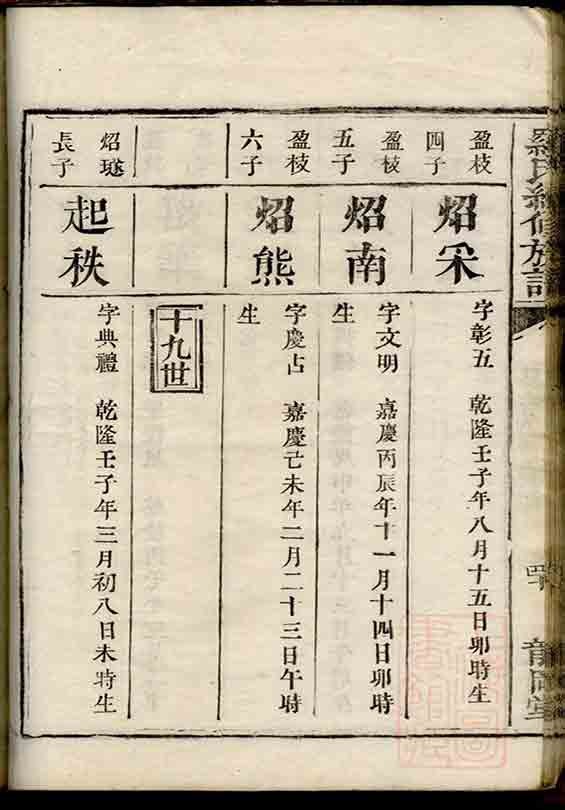 羅氏續修族譜
盈枝
四子
炤采
字彰五　乾隆壬子年八月十五日卯時生
盈枝
五子
炤南
字文明　嘉慶丙辰年十一月十四日卯時
生
盈枝
六子
炤熊
字慶占　嘉慶己未年二月二十三日午時
生
十九世
炤璲
長子
起秩
字典禮　乾隆壬子年三月初八日未時生